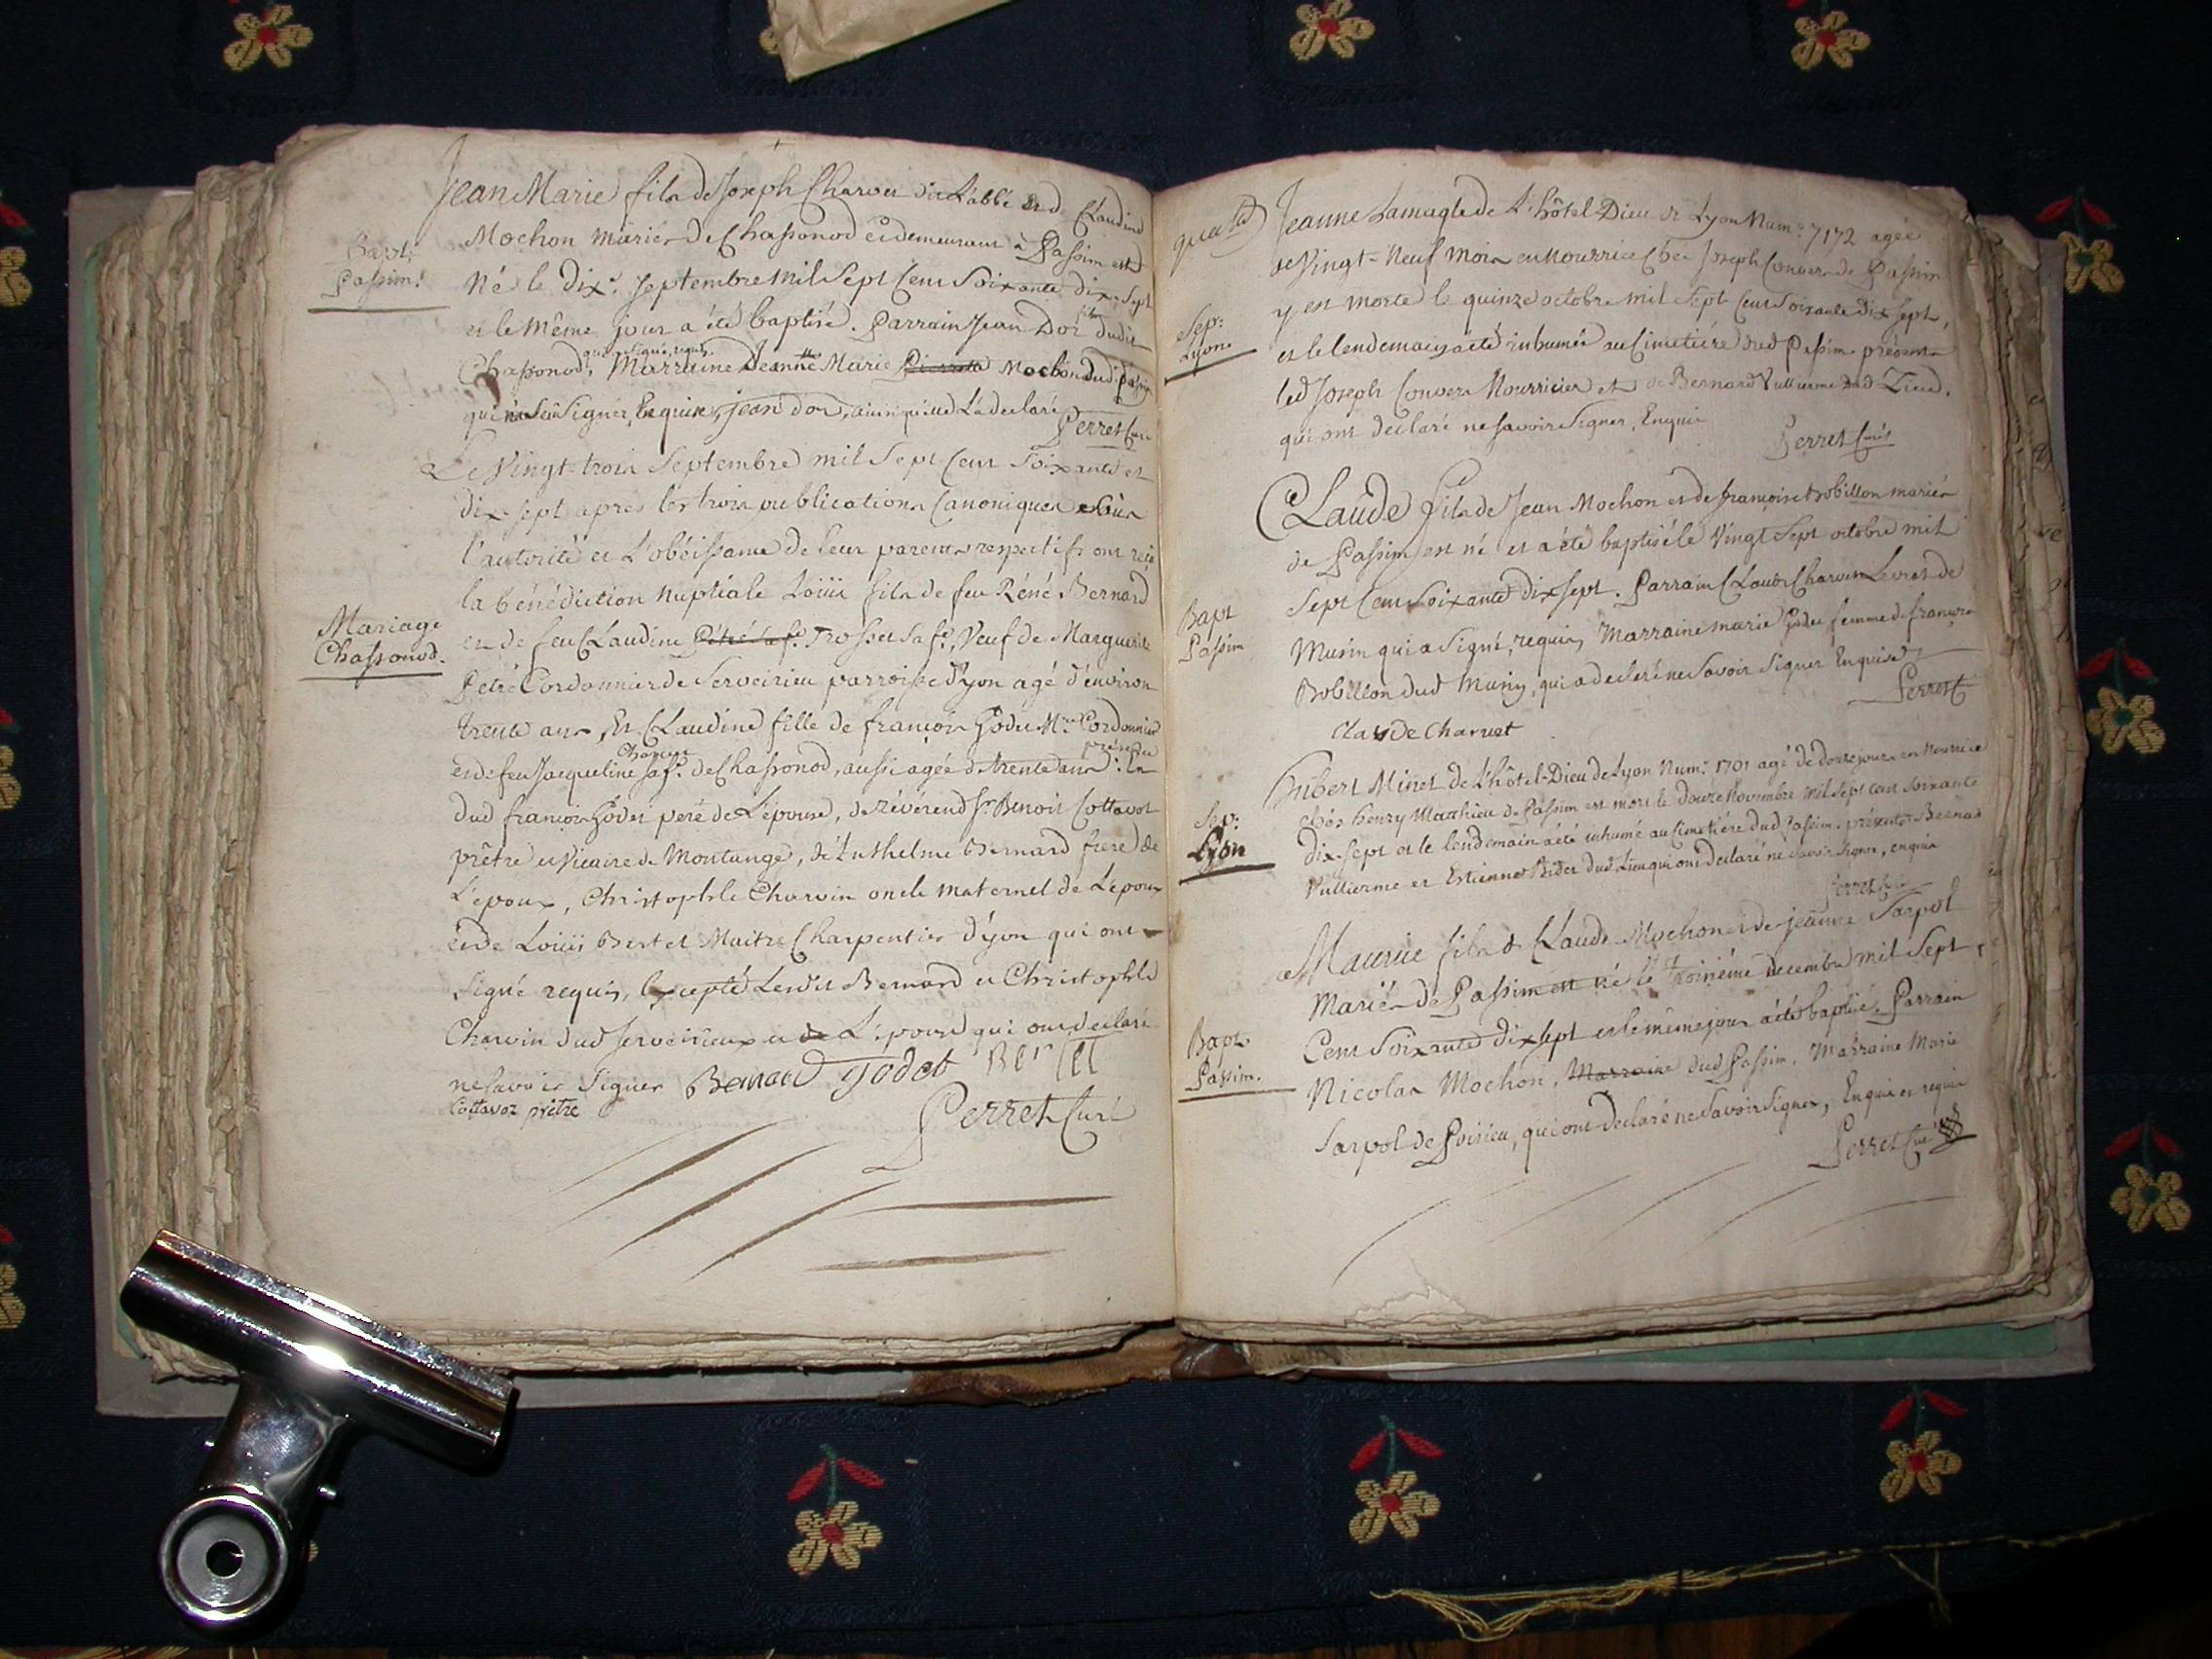 Jean Marie fils de Joseph Charvet dit L'abbé et de Claudine
Mochon mariés de Chassonod et demeurant à Passim est
Bapt:
Passim:
Né le dix.e Septembre mil Sept Cent Soixante dix-Sept
et le même jour a été baptisé. Parrain Jean Dor fils dudit
Chassonod, qui a signé, requis. Marraine Jeanne Marie Mochon dud. Passim
qui n'a Seu Signer, Enquise, jean dor, ainsi qu'elle L'a declaré
Perret Curé
Le Vingt-trois Septembre mil Sept Cent Soixante et
dix-sept après les trois publications Canoniques
l'autorité et L'obéissance de leur parents respectifs ont reçu
la bénédiction nuptiale Louis fils de feu Réné Bernard
Mariage
Chassonod.
et de feu Claudine Pétré sa fe. Trosset sa fe., Veuf de Marguerite
Pétré Cordonnier de Serveirieu parroisse d'yon agé d'environ
trente ans, Et Claudine fille de françois Godet Me. Cordonnier
et de feu Jacqueline Charvet sa fe. de Chassonod, aussi agée de trente ans: En présence
dud françois Godet pere de L'épouse, de révérend Sr. Benoit Cottavoz
prêtre et Vicaire de Montange, d'Anthelme Bernard frere de
L'époux, Christophle Charvin oncle maternel de L'époux
et de Louis Bertet Maitre Charpentier d'yon qui ont
Signé requis, Excepté Lesdits Bernard et Christophle
Charvin dud Serveirieux et de L'épouse qui ont declaré
ne Savoir Signer Benard Godet Bertet
Cottavoz prêtre
Perret Curé
Jeanne Lamugle de L'hôtel-Dieu de Lyon Num: 7172 agée
de Vingt-Neuf Mois en Nourrice chez Joseph Convers de Passim
y est morte le quinze octobre mil Sept Cent Soixante Dix Sept,
Sep:
Lyon.
et le lendemain a été inhumée au Cimetiére dud Passim. présents
led Joseph Convers Nourricier et de Bernard Vullierme dud Lieu.
qui ont declaré ne Savoir Signer, Enquis
Perret Curé
CLaude fils de Jean Mochon et de françoise Bobillon mariés
de Passim est né et a été baptisé le Vingt Sept octobre mil
Sept Cent Soixante dix sept. Parrain Claude Charvet de
Bapt
Passim
Musin qui a Signé, requis, Marraine marie Godet femme de françois
Bobillon dud Musin, qui a declaré ne Savoir Signer Enquise
Perret C
Claude Charvet
Hubert Minet de L'hôtel-Dieu de Lyon Num: 1701 agé de douze jours en Nourrice
chés henry Matthieu de Passim est mort le douze Novembre mil Sept Cent Soixante
Sep:
Lyon
dix-sept et le lendemain a été inhumé au Cimetiére dud Passim. présents Bernard
Vullierme et Estienne Bider dud. Lieu qui ont declaré ne Savoir Signer, enquis
Perret Curé
Maurice fils de Claude Mochon et de jeanne Sarpol
Mariés de Passim est né le troisiéme decembre mil Sept
Cent Soixante dix sept et le même jour a été baptisé. Parrain
Bapt.
Passim.
Nicolas Mochon, Marraine dud Passim, Marraine Marie
Sarpol de Poisieu, qui ont declaré ne Savoir Signer, Enquis et requis
Perret Curé